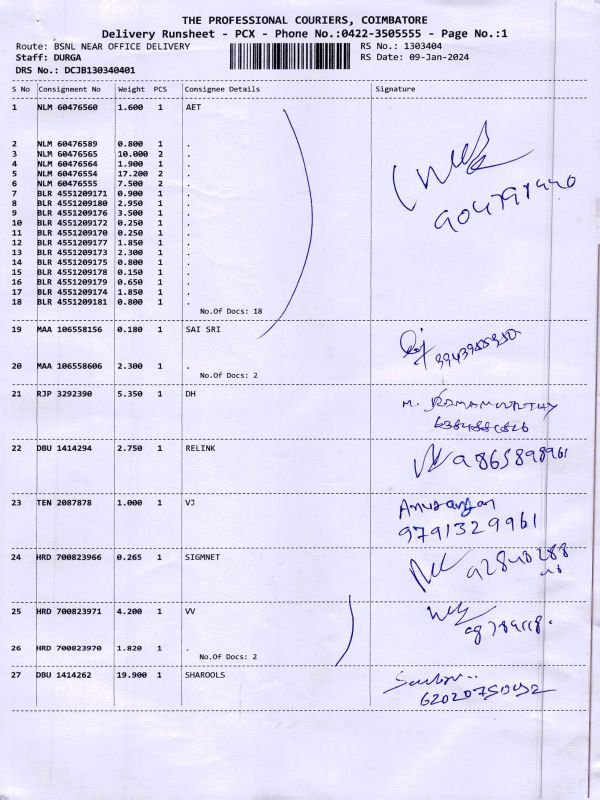 THE PROFESSIONAL COURIERS, COIMBATORE
Delivery Runsheet - PCX - Phone No.:0422-3505555 - Page No.:1
Route: BSNL NEAR OFFICE DELIVERY RS No.: 1303404
Staff: DURGA RS Date: 09-Jan-2024
DRS No.: DCJB130340401
S No Consignment No Weight PCS Consignee Details Signature
1 NLM 60476560 1.600 1 AET
2 NLM 60476589 0.800 1 .
3 NLM 60476565 10.000 2 .
4 NLM 60476564 1.900 1 .
5 NLM 60476554 17.200 2 .
6 NLM 60476555 7.500 2 .
7 BLR 4551209171 0.900 1 .
8 BLR 4551209180 2.950 1 .
9 BLR 4551209176 3.500 1 .
10 BLR 4551209172 0.250 1 .
11 BLR 4551209170 0.250 1 .
12 BLR 4551209177 1.850 1 .
13 BLR 4551209173 2.300 1 .
14 BLR 4551209175 0.800 1 .
15 BLR 4551209178 0.150 1 .
16 BLR 4551209179 0.650 1 .
17 BLR 4551209174 1.850 1 .
18 BLR 4551209181 0.800 1 .
No.Of Docs: 18
19 MAA 106558156 0.180 1 SAI SRI
20 MAA 106558606 2.300 1 .
No.Of Docs: 2
21 RJP 3292390 5.350 1 DH
22 DBU 1414294 2.750 1 RELINK
9865898961
23 TEN 2087878 1.000 1 VJ
9791329961
24 HRD 700823966 0.265 1 SIGMNET
25 HRD 700823971 4.200 1 VV
26 HRD 700823970 1.820 1 .
No.Of Docs: 2
27 DBU 1414262 19.900 1 SHAROOLS